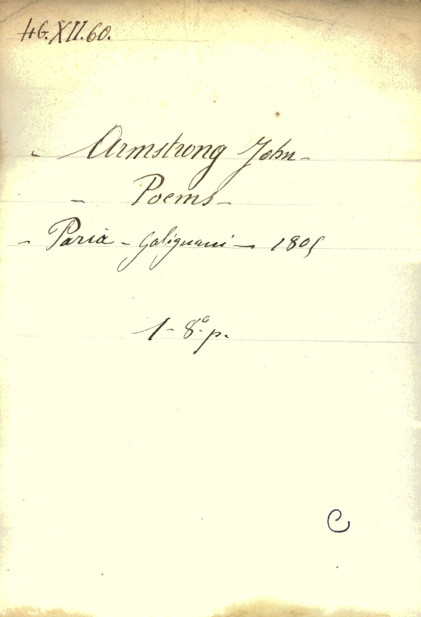 46.XII.60.
Armstrong John -
- Poems -
- Paris - Galignani - 1805
1 - 8º p.
C